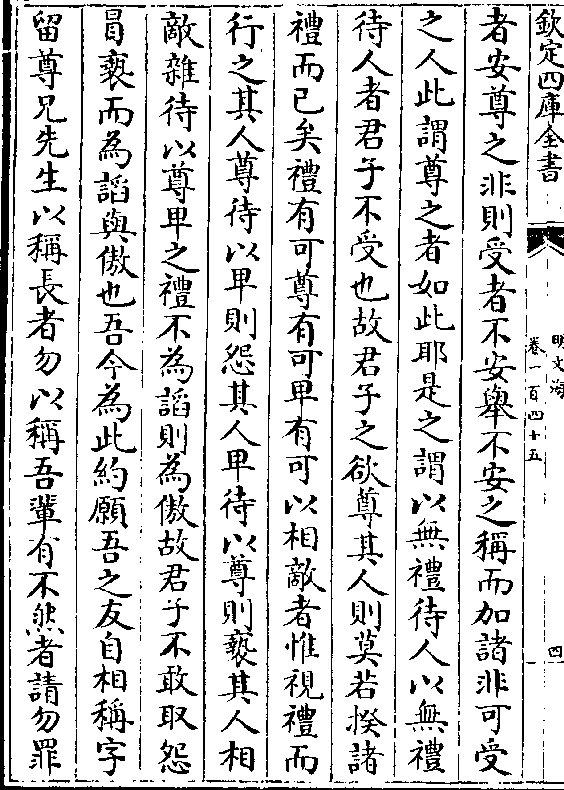 欽定四庫全書
明文海
卷一百四十五
四
者安尊之非則受者不安舉不安之稱而加諸非可受
之人此謂尊之者如此耶是之謂以無禮待人以無禮
待人者君子不受也故君子之欲尊其人則莫若揆諸
禮而已矣禮有可尊有可卑有可以相敵者惟視禮而
行之其人尊待以卑則怨其人卑待以尊則褻其人相
敵雜待以尊卑之禮不為謟則為傲故君子不敢取怨
冒褻而為謟與傲也吾今為此約願吾之友自相稱字
留尊兄先生以稱長者勿以稱吾輩有不然者請勿罪